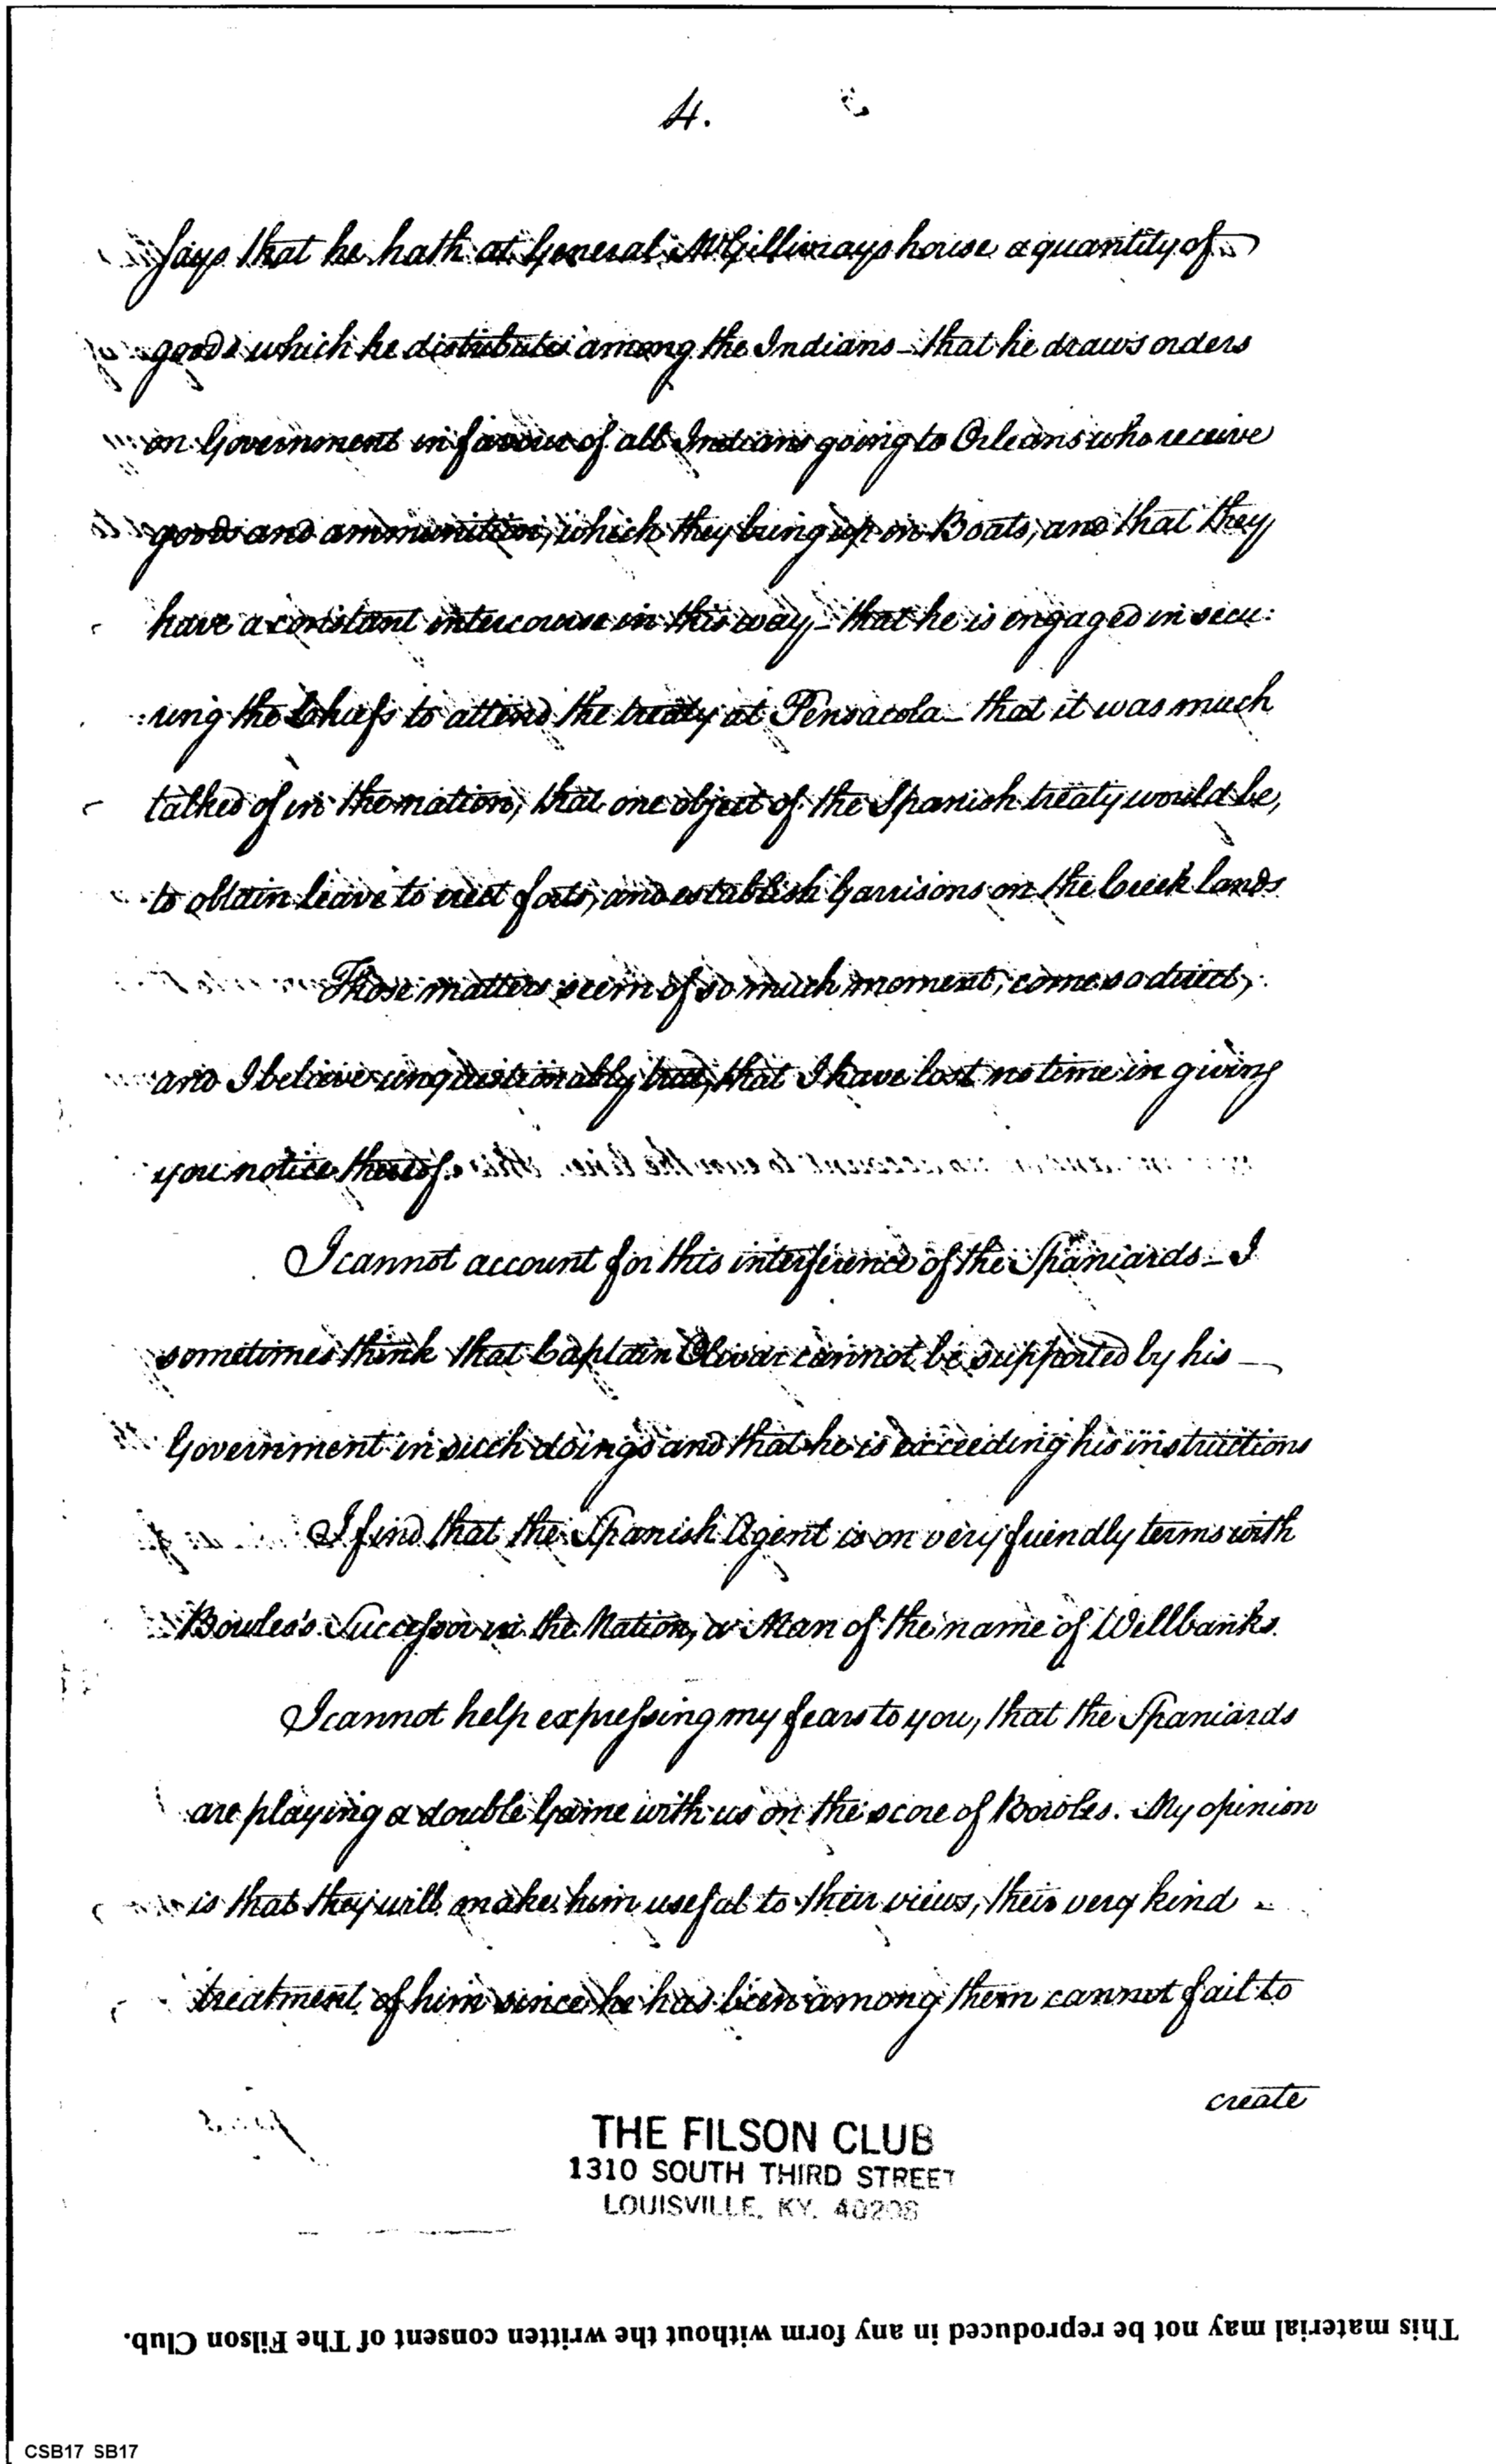 4.
says that he hath at General McGillivrays house a quantity of
goods which he distributes among the Indians - that he draws orders
on Government in favour of all Indians going to Orleans who receive
goods and ammunition, which they bring up in Boats, and that they
have a constant intercourse in this way - that he is engaged in secu:
:ring the Chiefs to attend the treaty at Pensacola - that it was much
talked of in the nation, that one object of the Spanish treaty would be,
to obtain leave to erect forts, and establish Garrisons on the Creek lands
Those matters seem of so much moment, come so direct,
and I believe unquestionably true, that I have lost no time in giving
you notice thereof.
I cannot account for this interference of the Spaniards - I
sometimes think that Captain Olivar cannot be supported by his
Government in such doings and that he is exceeding his instructions
I find that the Spanish Agent is on very friendly terms with
Bowles's Successor in the Nation, a Man of the name of Wellbanks.
I cannot help expressing my fears to you, that the Spaniards
are playing a double Game with us on the score of Bowles. My opinion
is that they will make him useful to their views, their very kind
treatment of him since he has been among them cannot fail to
create
THE FILSON CLUB
1310 SOUTH THIRD STREET
LOUISVILLE, KY. 40208
This material may not be reproduced in any form without the written consent of The Filson Club.
CSB17 SB17